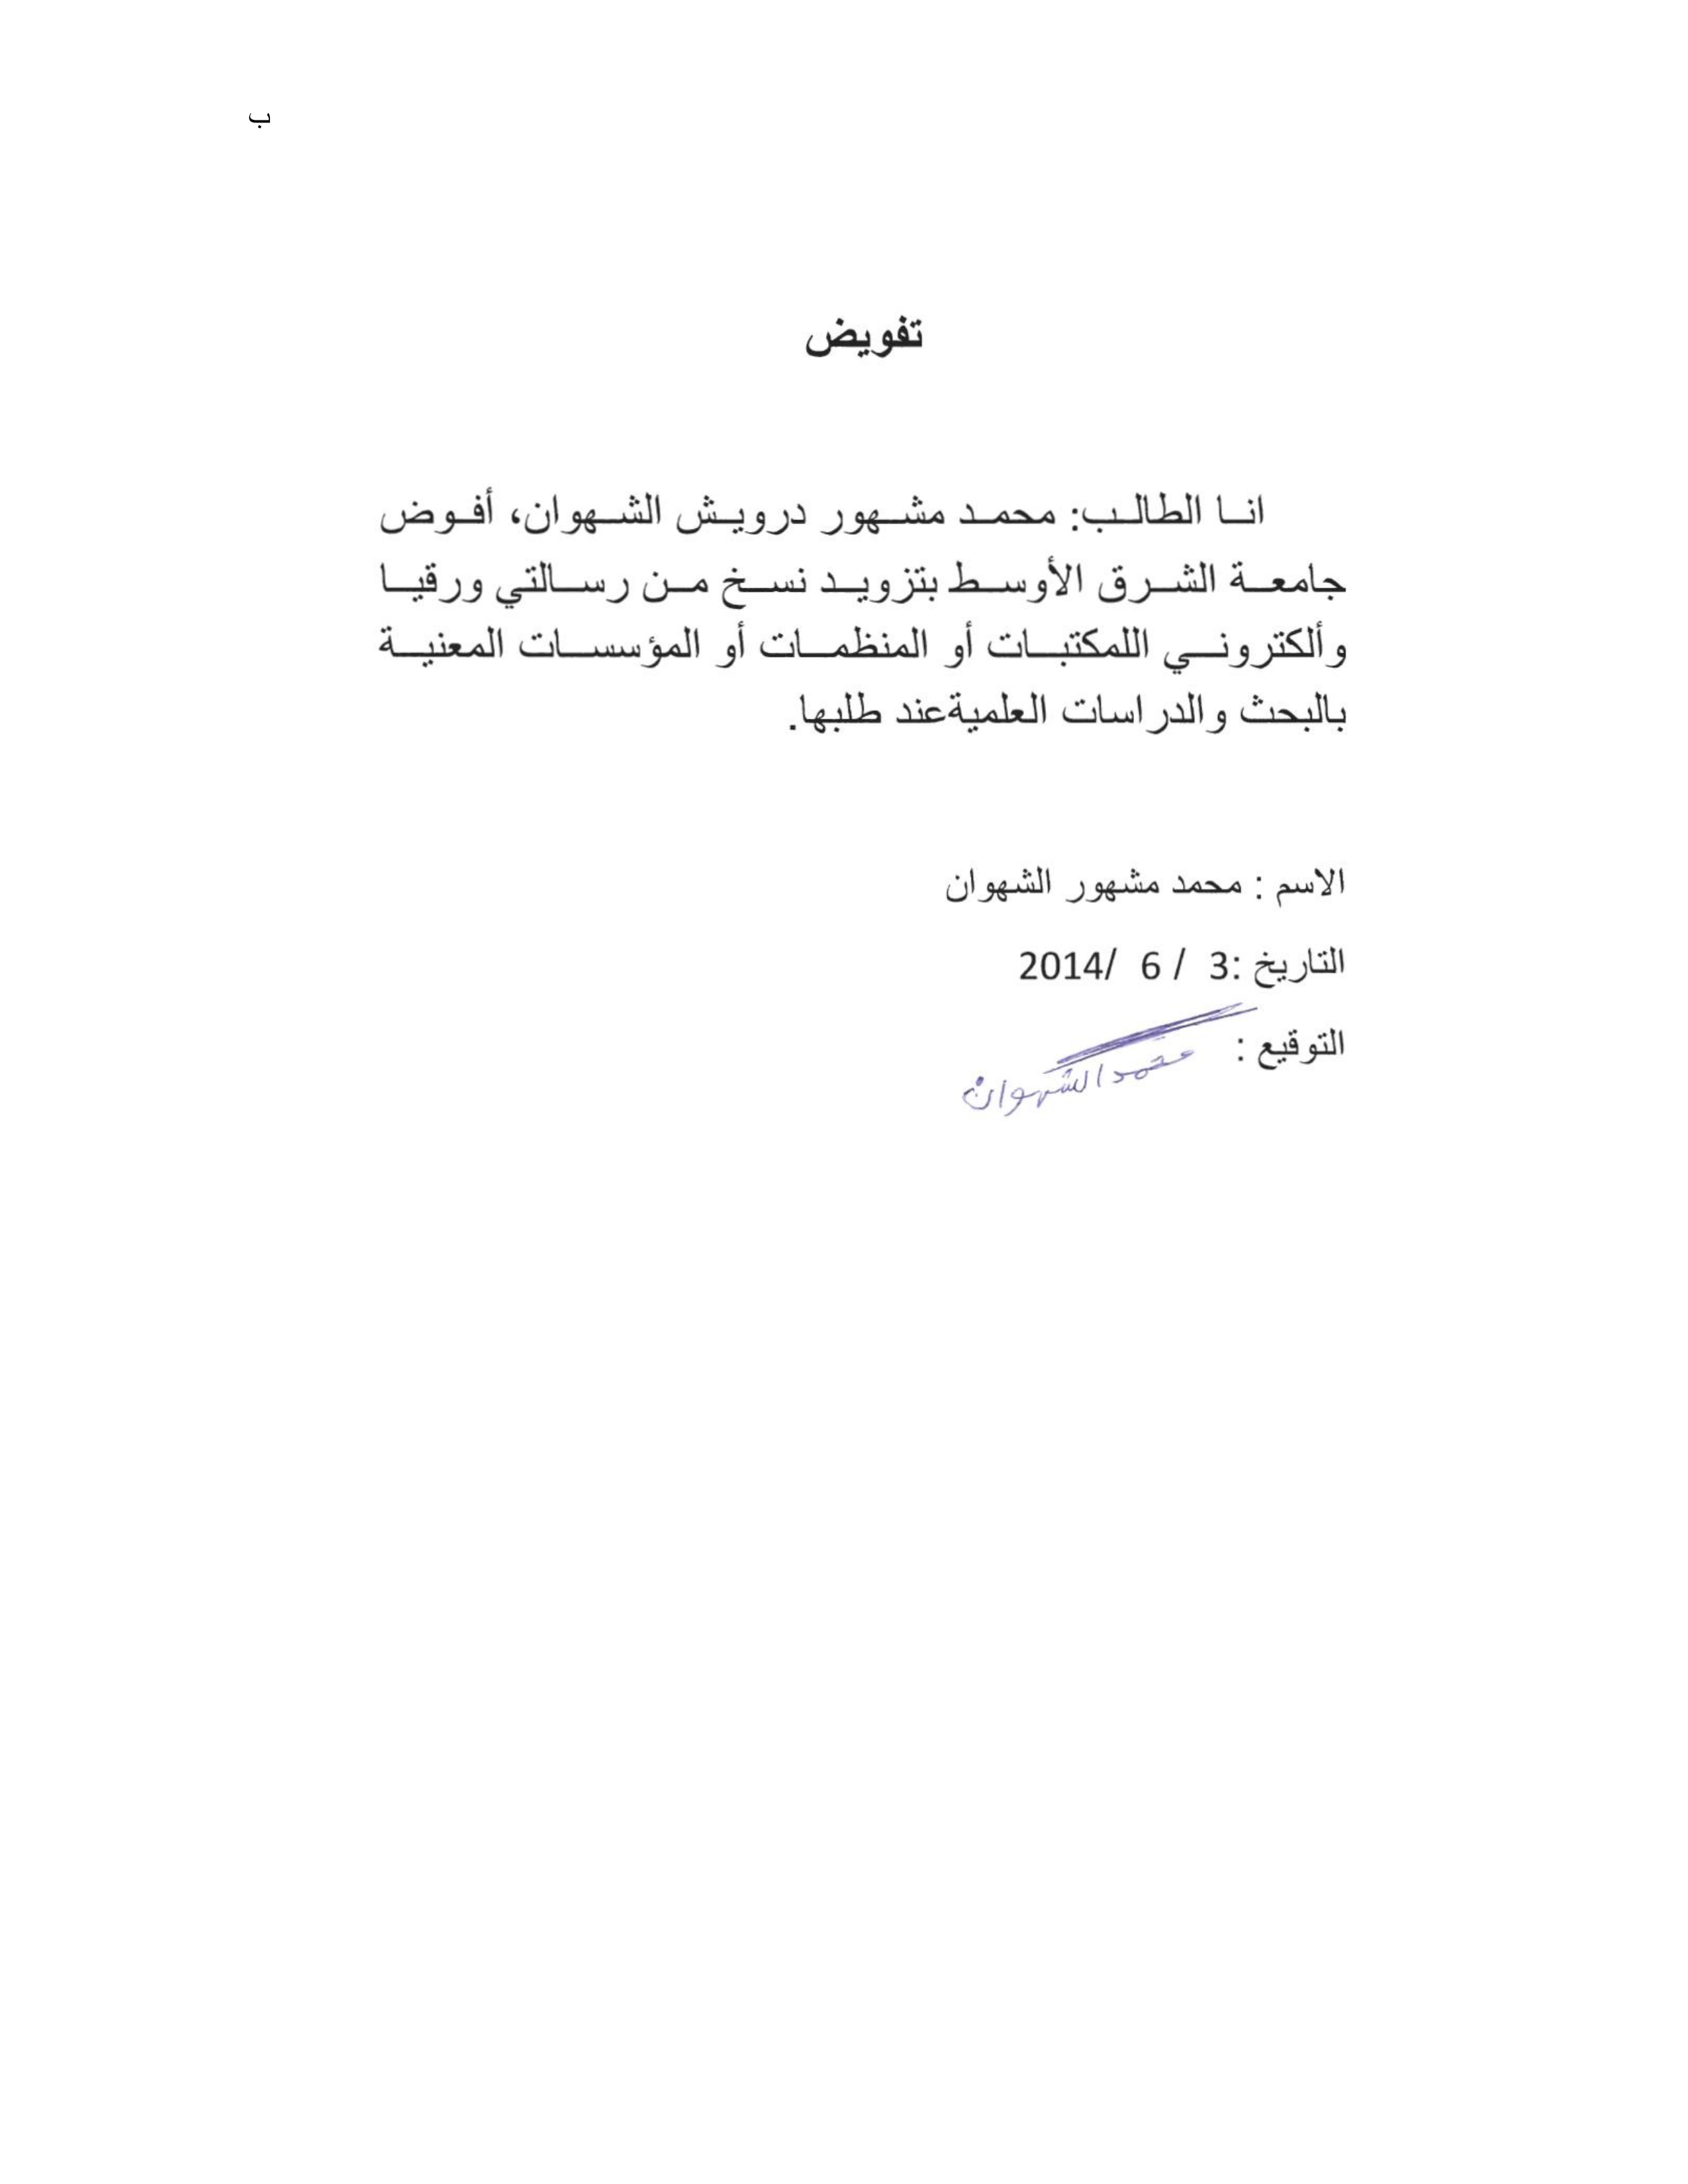 ب
تفويض
انا الطالب: محمد مشهور درويش الشهوان، أفوض
جامعة الشرق الأوسط بتزويد نسخ من رسالتي ورقيا
وألكتروني اللمكتبات أو المنظمات أو المؤسسات المعنية
بالبحث والدراسات العلميةعند طلبها.
الاسم : محمد مشهور الشهوان
التاريخ :3 / 6 /2014
التوقيع :
محمد الشهوان